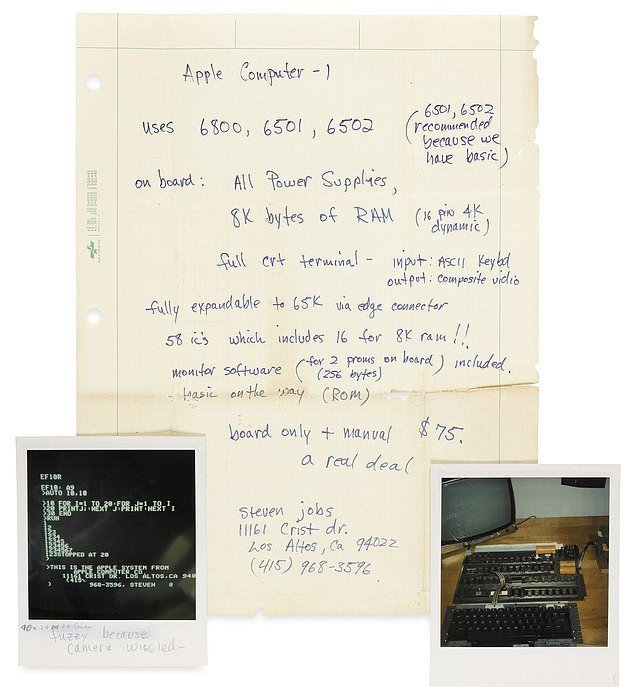 Apple Computer - 1
uses 6800, 6501, 6502
(6501, 6502
recommended
because we
have basic)
on board: All Power Supplies,
8K bytes of RAM (16 pin 4K
dynamic)
full crt terminal - input: ASCII Keybd
output: composite vidio
fully expandable to 65K via edge connector
58 ic's which includes 16 for 8K ram!!
monitor software (for 2 proms on board) included.
(256 bytes)
basic on the way (ROM)
board only + manual $75.
a real deal
Steven jobs
11161 Crist dr.
Los Altos, Ca 94022
(415) 968-3596
EF10R
EF10: A9
>AUTO 10,10
>10 FOR I=1 TO 20:FOR J=1 TO I
>20 PRINT J;:NEXT J:PRINT:NEXT I
>30 END
>RUN
STOPPED AT 20
>THIS IS THE APPLE SYSTEM FROM
APPLE COMPUTER CO.
11161 CRIST DR. LOS ALTOS,CA 940
(415)
> 968-3596, STEVEN @
fuzzy because
camera wiggled-